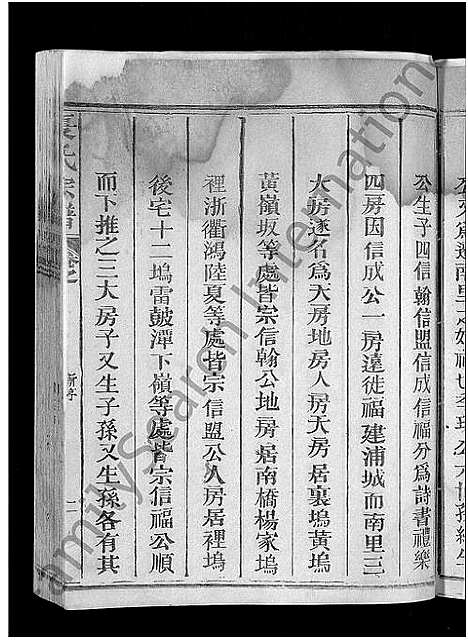 公生子四信翰信盟信成信福分爲詩書禮樂
四房因信成公一房遠徙福建浦城而南里三
大房遂名爲天房地房人房天房居裏塢黃塢
黃嶺坂等處皆宗信翰公地房居南橋楊家塢
裡浙衢鴻陸夏等處皆宗信盟公人房居裡塢
後宅十二塢雷鼓潭下嶺等處皆宗信福公順
而下推之三大房子又生子孫又生孫各有其
氏宗譜
新序
FamilySearch International